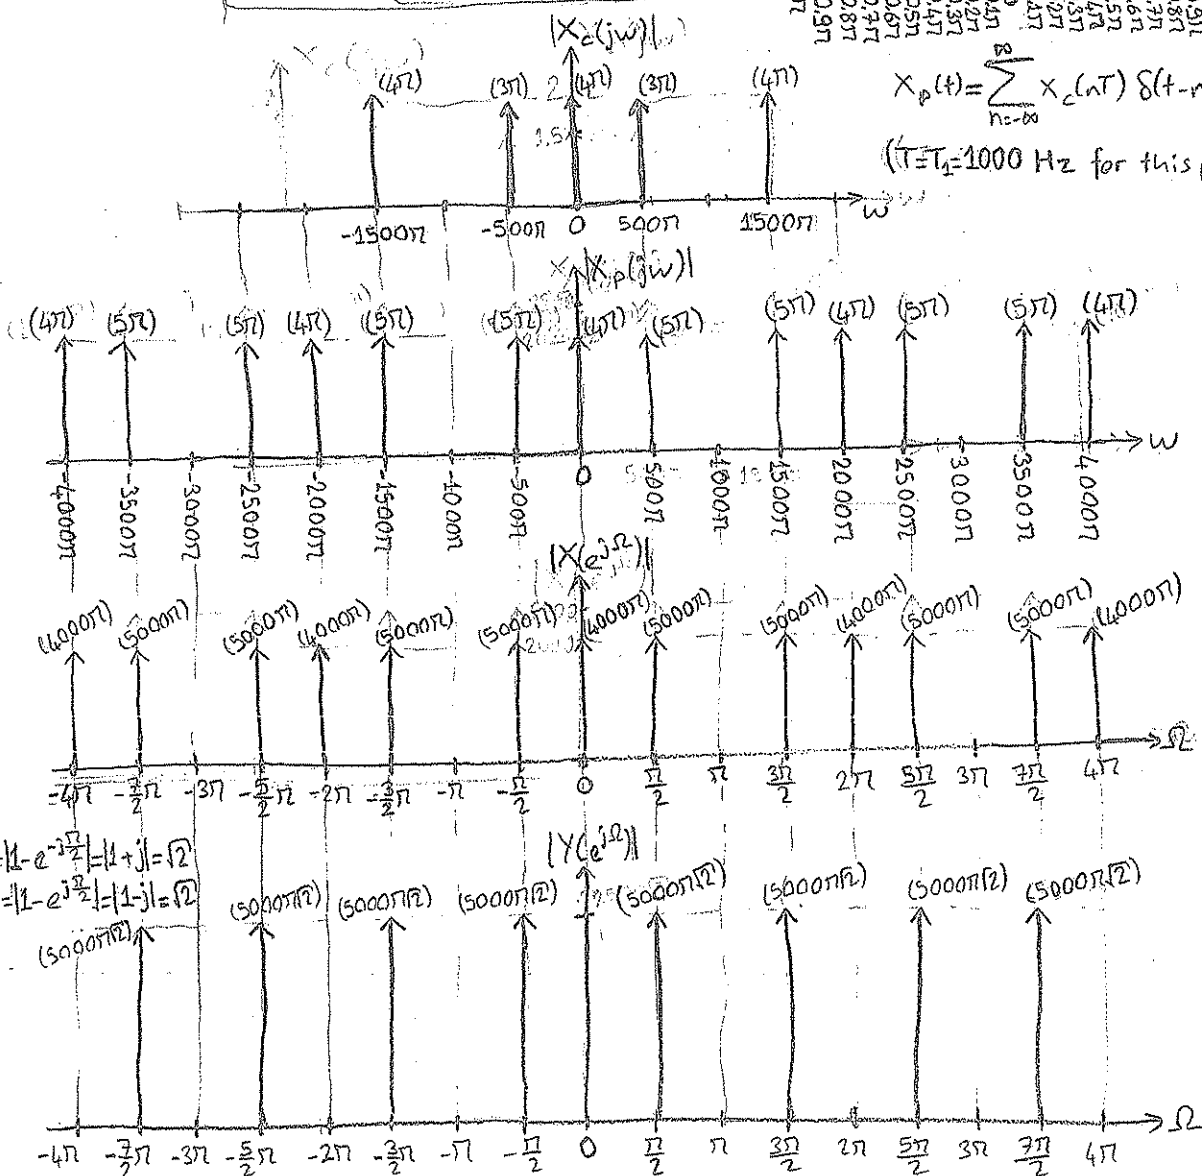 |Xc(jw)|
X_p(t)=∑_{n=-∞}^{∞} x_c(nT) δ(t-n
(T=T₁=1000 Hz for this p
(4π) (3π) (4π) (3π) (4π)
-1500π -500π 0 500π 1500π w
|X_p(jw)|
(4π) (5π) (5π) (4π) (5π) (5π) (4π) (5π) (5π) (4π) (5π) (5π) (4π)
-4000π -3500π -3000π -2500π -2000π -1500π -1000π -500π 0 500π 1000π 1500π 2000π 2500π 3000π 3500π 4000π w
|X(e^{jΩ})|
(4000π) (5000π) (5000π) (4000π) (5000π) (5000π) (4000π) (5000π) (5000π) (4000π) (5000π) (5000π) (4000π)
-4π -7/2π -3π -5/2π -2π -3/2π -π -π/2 0 π/2 π 3π/2 2π 5π/2 3π 7π/2 4π Ω
|Y(e^{jΩ})|
=|1-e^{-jπ/2}|=|1+j|=√2
=|1-e^{jπ/2}|=|1-j|=√2
(5000π√2) (5000π√2) (5000π√2) (5000π√2) (5000π√2) (5000π√2) (5000π√2) (5000π√2)
-4π -7/2π -3π -5/2π -2π -3/2π -π -π/2 0 π/2 π 3π/2 2π 5π/2 3π 7π/2 4π Ω